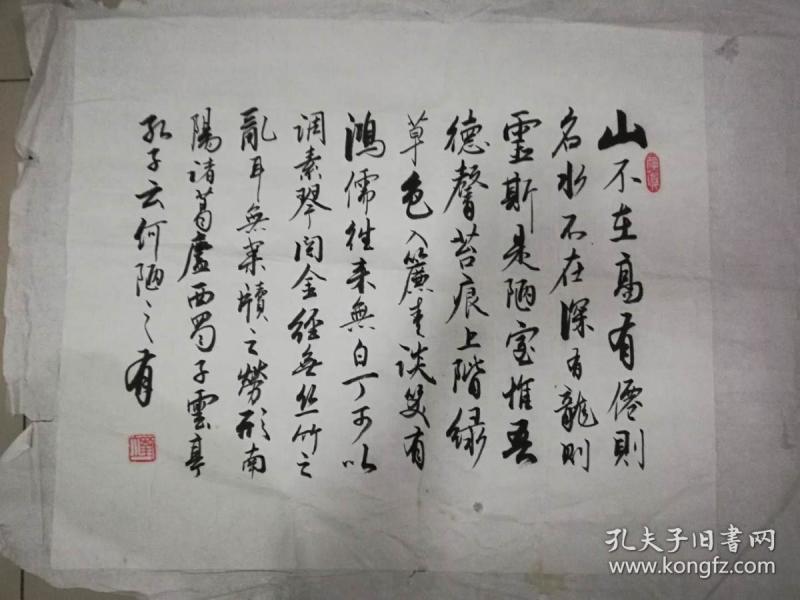 山不在高有僊則
名水不在深有龍則
靈斯是陋室惟吾
德馨苔痕上階緑
草色入簾青談笑有
鴻儒往来無白丁可以
调素琴阅金經無丝竹之
亂耳無案牘之勞形南
陽诸葛廬西蜀子雲亭
孔子云何陋之有
孔夫子旧書网
www.kongfz.com